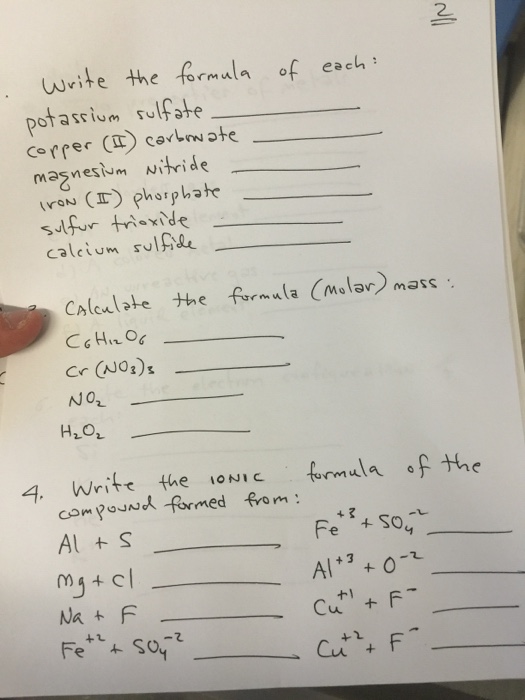 2
Write the formula of each:
potassium sulfate
copper (II) carbonate
magnesium Nitride
iron (II) phosphate
sulfur trioxide
calcium sulfide
Calculate the formula (Molar) mass:
C6H12O6
Cr (NO3)3
NO2
H2O2
4. Write the IONIC formula of the
compound formed from:
Al + S
Mg + Cl
Na + F
Fe+2 + SO4-2
Fe+3 + SO4-2
Al+3 + O-2
Cu+1 + F-
Cu+2 + F-